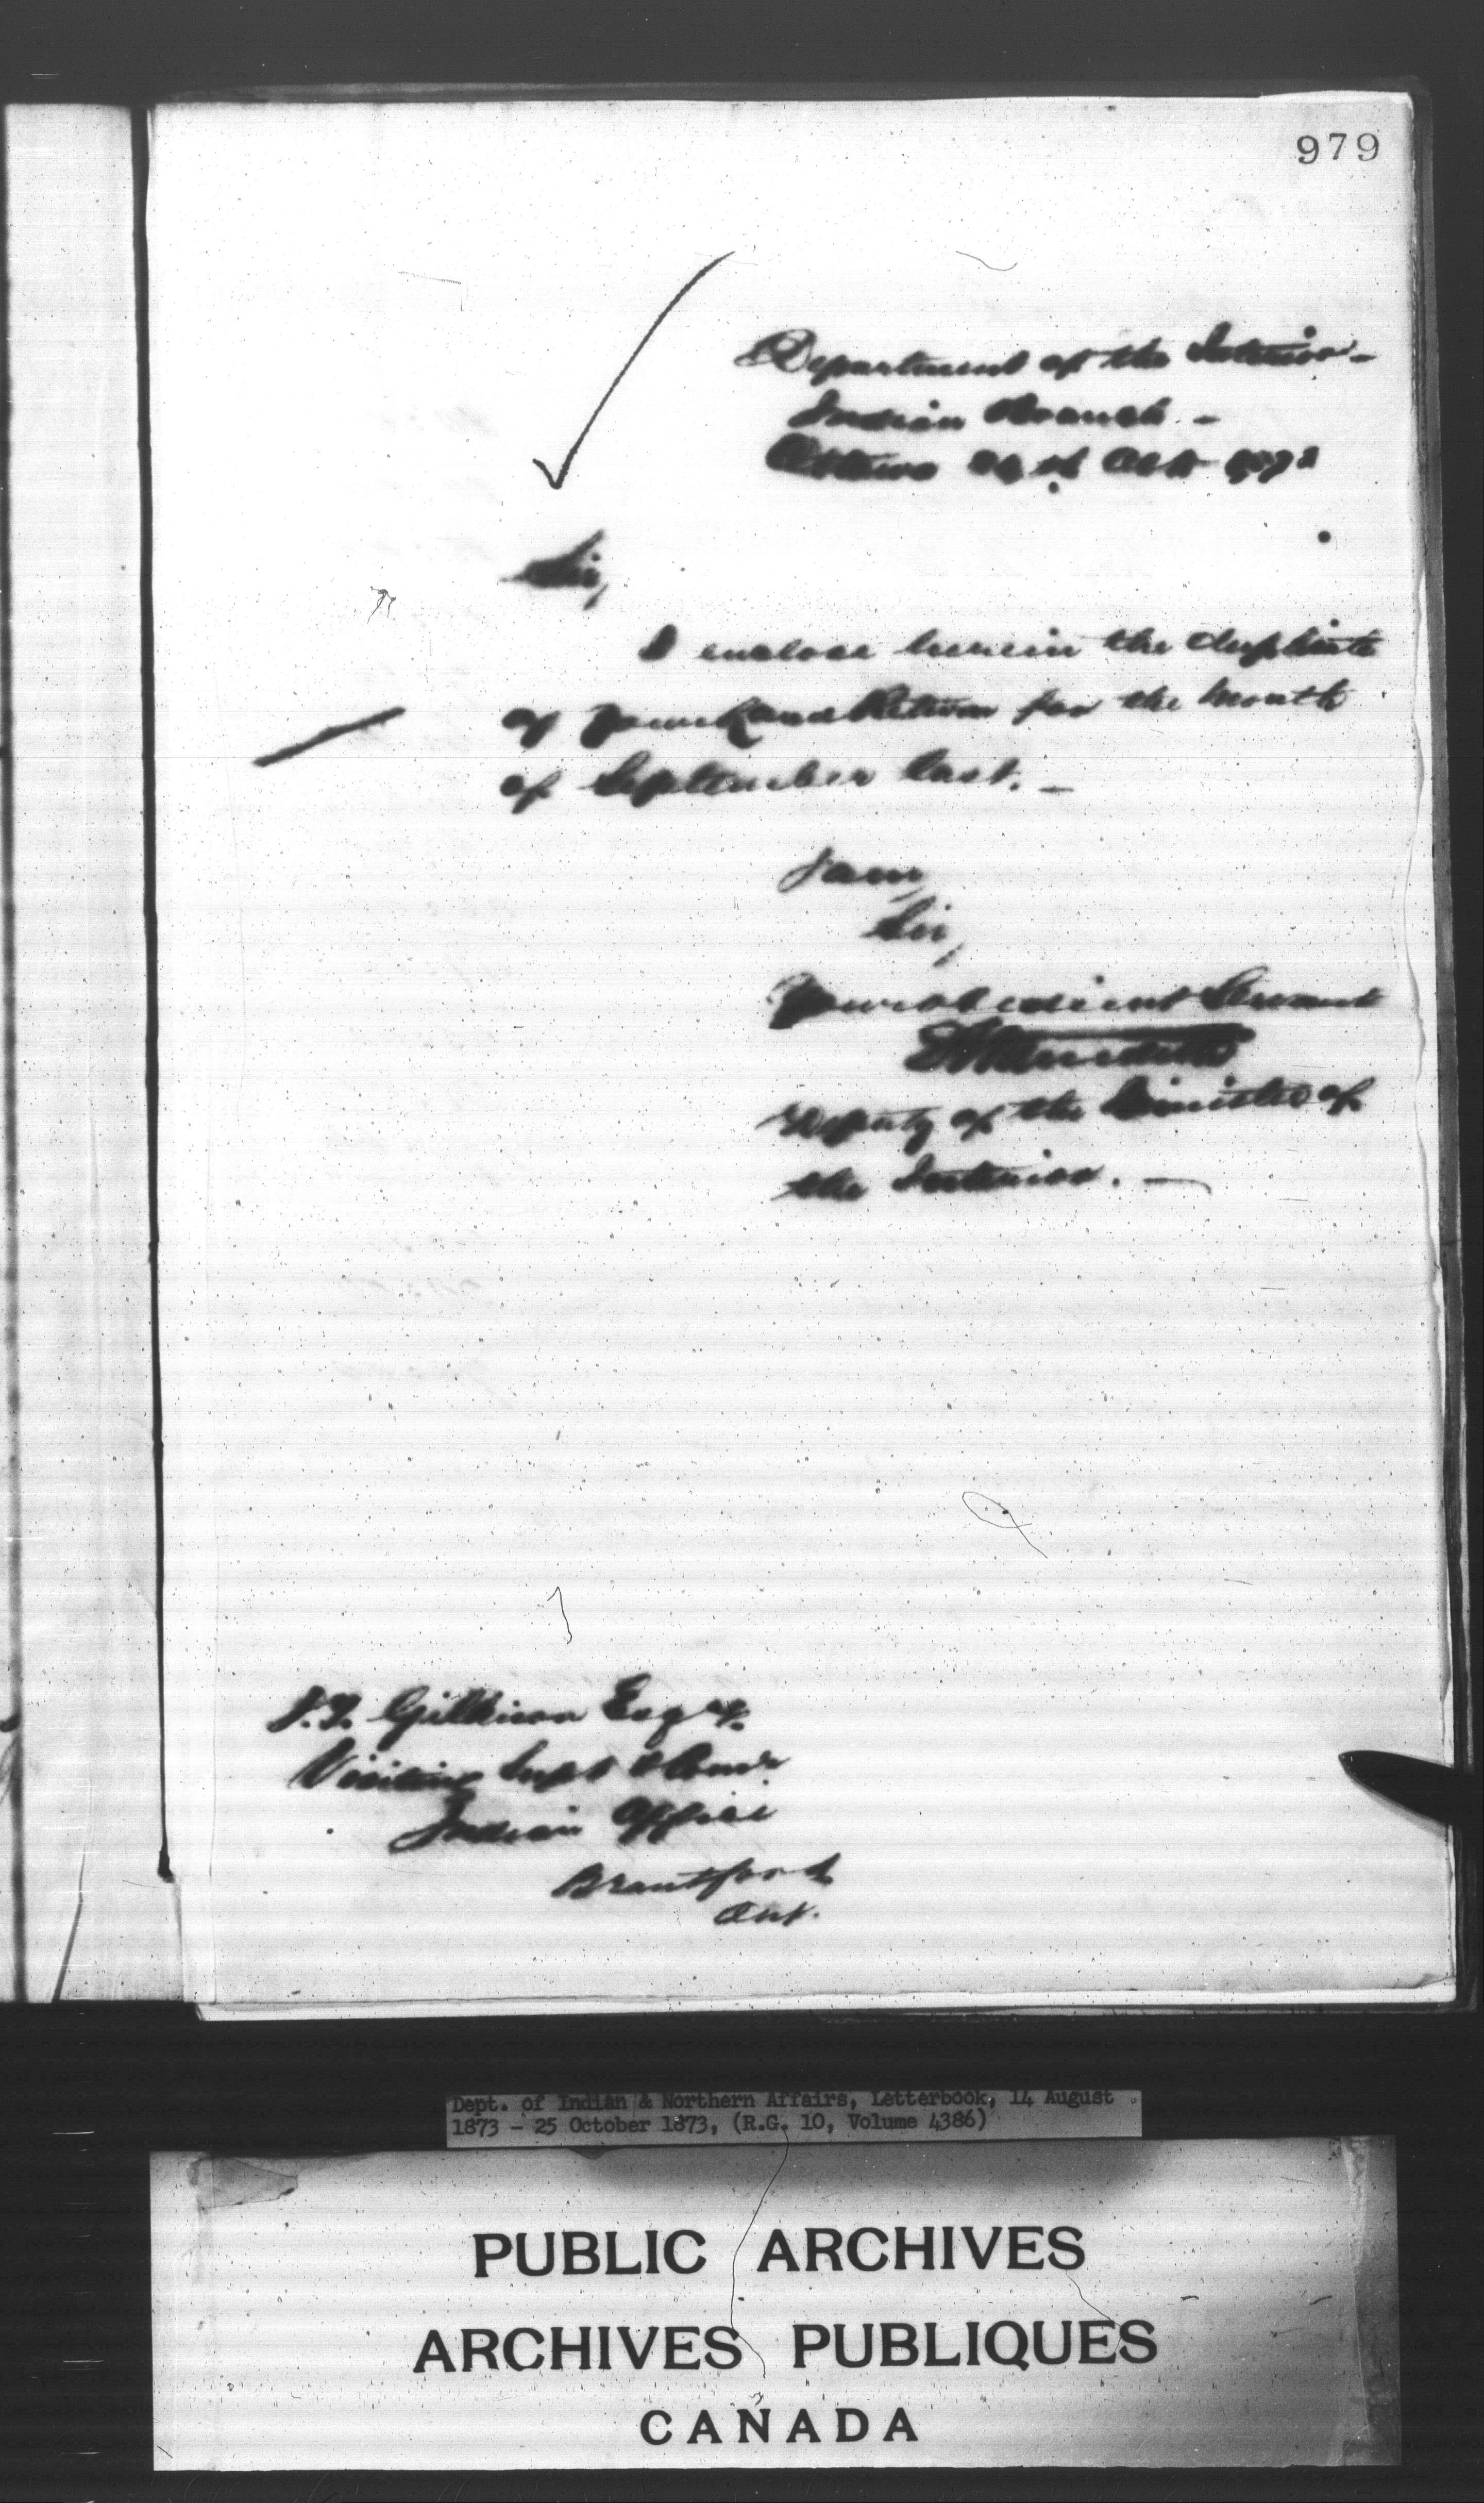 979
Department of the Interior -
Indian Branch. -
Ottawa 24th Oct 1873
Sir,
I enclose herein the duplicate
of your Land Return for the Month
of September last. -
I am,
Sir,
Your obedient Servant
E A Meredith
Deputy of the Minister of
the Interior. -
J.T. Gilkison Esqre.
Visiting Supt & Comr
Indian Office
Brantford
Ont.
Dept. of Indian & Northern Affairs, Letterbook, 14 August
1873 - 25 October 1873, (R.G. 10, Volume 4386)
PUBLIC ARCHIVES
ARCHIVES PUBLIQUES
CANADA